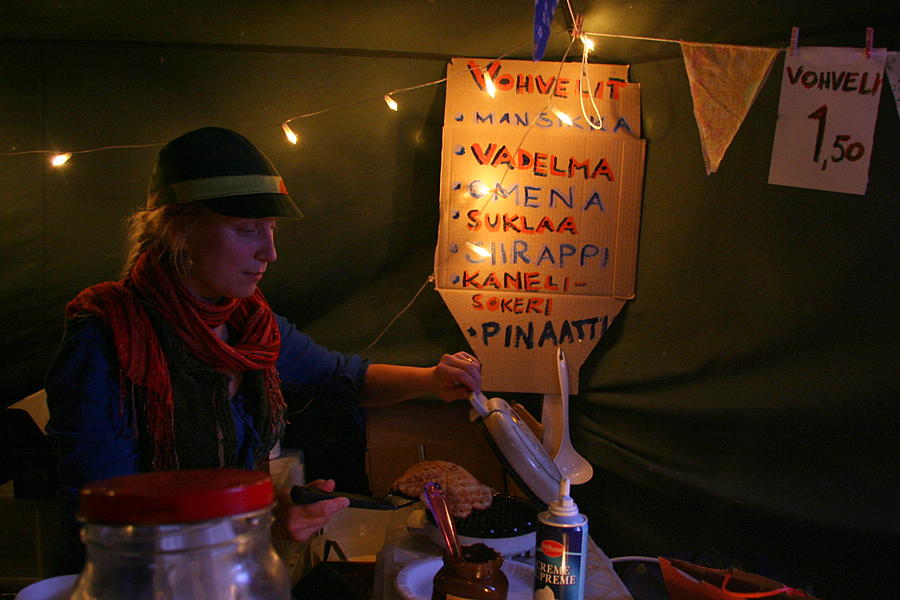 VOHVELIT
• MANSIKKA
• VADELMA
• OMENA
• SUKLAA
• SIIRAPPI
• KANELI-
SOKERI
• PINAATTI
VOHVELI
1,50
CREME
SUPREME